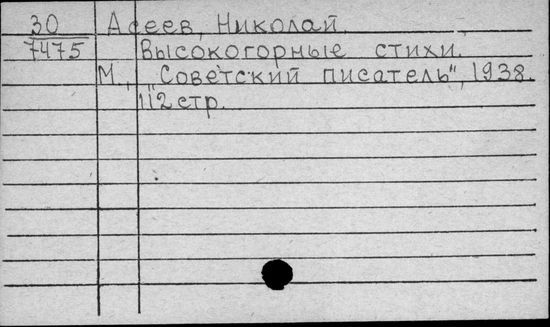 30 Асеев, Николай.
7475 Высокогорные стихи.
М., "Советский писатель", 1938.
112 стр.